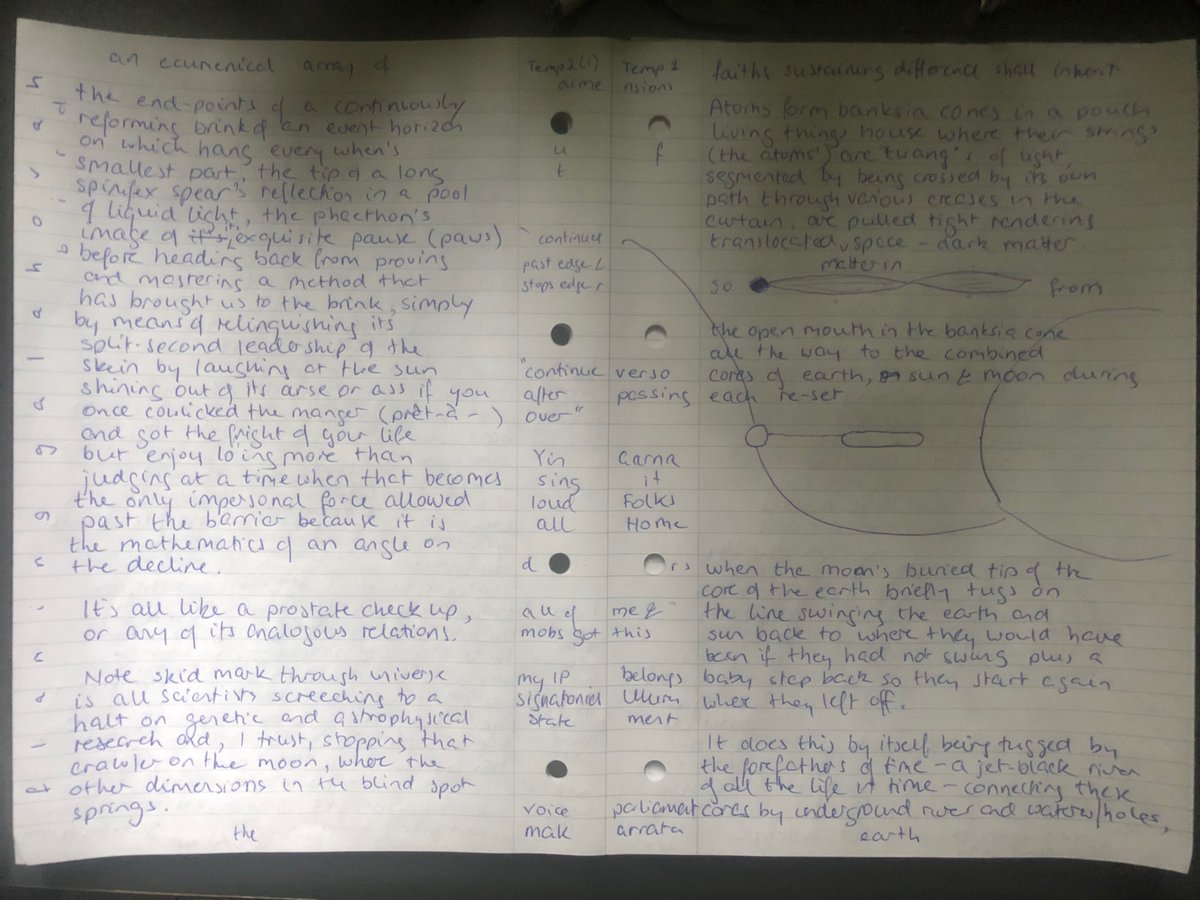 an ecumenical array of
the end-points of a continuously
reforming brink of an event horizon
on which hang every when's
smallest part, the tip of a long
spinifex spear's reflection in a pool
of liquid light, the phaethon's
image of it's, its exquisite pause (paws)
before heading back from proving
and mastering a method that
has brought us to the brink, simply
by means of relinquishing its
split-second leadership of the
skein by laughing at the sun
shining out of its arse or ass if you
once cowlicked the manger (prêt-à-)
and got the fright of your life
but enjoy lo'ing more than
judging at a time when that becomes
the only impersonal force allowed
past the barrier because it is
the mathematics of an angle on
the decline.
It's all like a prostate check up,
or any of its analogous relations.
Note skid mark through universe
is all scientists screeching to a
halt on genetic and astrophysical
research and, I trust, stopping that
crawler on the moon, where the
other dimensions in the blind spot
springs.
the
Temp 2(1) Temp 1
dime nsions
u f
t
"continue
past edge L
stops edge r
"continue verso
after passing
over"
Yin Garna
sing it
loud Folks
all Home
d rs
all of me &
mobs got this
my IP belongs
signatories Uluru
state ment
voice paliamat
mak arrata
faiths sustaining difference shall inherit
Atoms form banksia cones in a pouch
living things house where their strings
(the atoms') are twang's of light,
segmented by being crossed by its own
path through various creases in the
curtain, are pulled tight rendering
translocated space - dark matter.
matter in
so from
the open mouth in the banksia cone
all the way to the combined
cores of earth, sun & moon during
each re-set
when the moon's buried tip of the
core of the earth briefly tugs on
the line swinging the earth and
sun back to where they would have
been if they had not swung plus a
baby step back so they start again
where they left off.
It does this by itself being tugged by
the forefathers of time - a jet-black river
of all the life in time - connecting these
cores by underground river and waters/holes,
earth